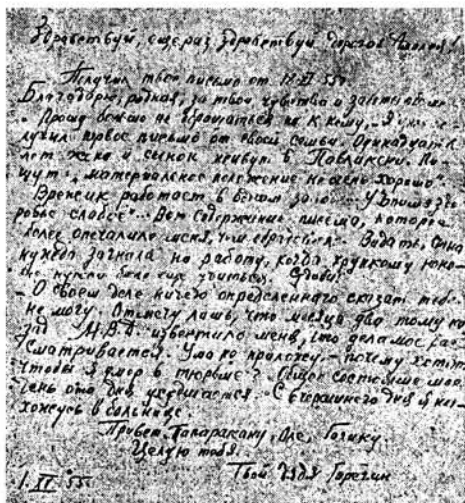 Здравствуй, еще раз здравствуй дорогая
Получил твое письмо от 18-XI 55г.
Благодарю, родная, за твои чувства и заботы
Прошу больше не обращаться ни к кому, - Я
лучил первое письмо от своей семьи. Одинадцать
лет жена и сынок живут в Павликени. Пи-
шут: "материальное положение не очень хорошо".
Временик работает в
ровье слабое"... Вот содержание письма, которое
более опечалило меня, чем обрадовало. Видать, одна
нужда загнала на работу, когда хрупкому юно-
ше нужно было еще учиться. Судьба!
- О своем деле ничего определенного сказать тебе
не могу. Отмечу лишь, что месяца два тому на-
зад М.В.Д. известило меня, что дело мое рас-
сматривается. Ума не приложу - почему хотят
чтобы я умер в тюрьме? Общее состояние мое
день ото дня ухудшается. С вчерашнего дня я на-
хожусь в больнице.
Привет Оле, Гогику.
Целую тебя.
Твой дядя Горегин
55г.